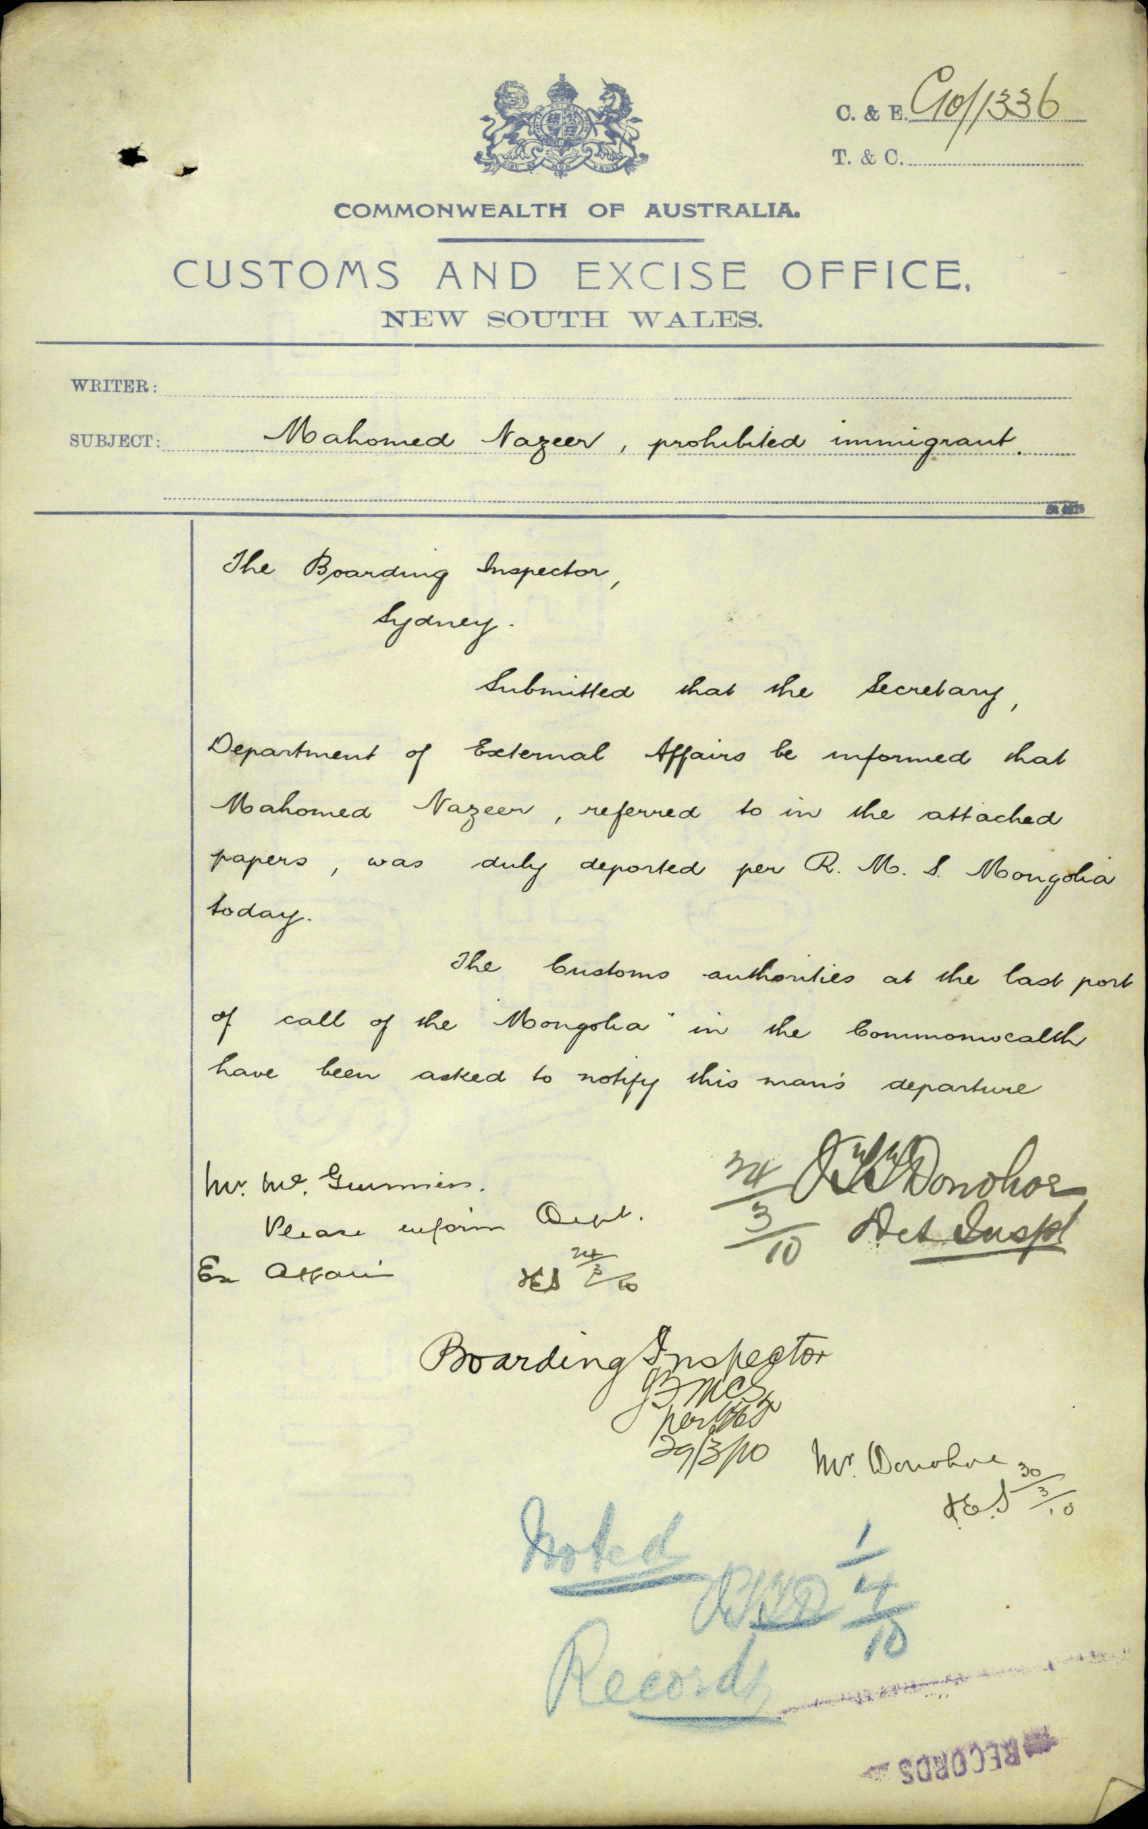 C. & E. C10/1336
T. & C.
COMMONWEALTH OF AUSTRALIA.
CUSTOMS AND EXCISE OFFICE,
NEW SOUTH WALES.
WRITER:
SUBJECT: Mahomed Nazeer, prohibited immigrant.
The Boarding Inspector,
Sydney.
Submitted that the Secretary,
Department of External Affairs be informed that
Mahomed Nazeer, referred to in the attached
papers, was duly deported per R. M. S. Mongolia
today.
The Customs authorities at the last port
of call of the "Mongolia" in the Commonwealth
have been asked to notify this man's departure
Donohoe
24/3/10
Det Inspt
Mr. Mc.
Please inform Dept.
Ex Affairs
24/3/10
Boarding Inspector
per
29/3/10
Mr. Donohoe
30/3/10
Noted
1/4/10
Records
RECORDS